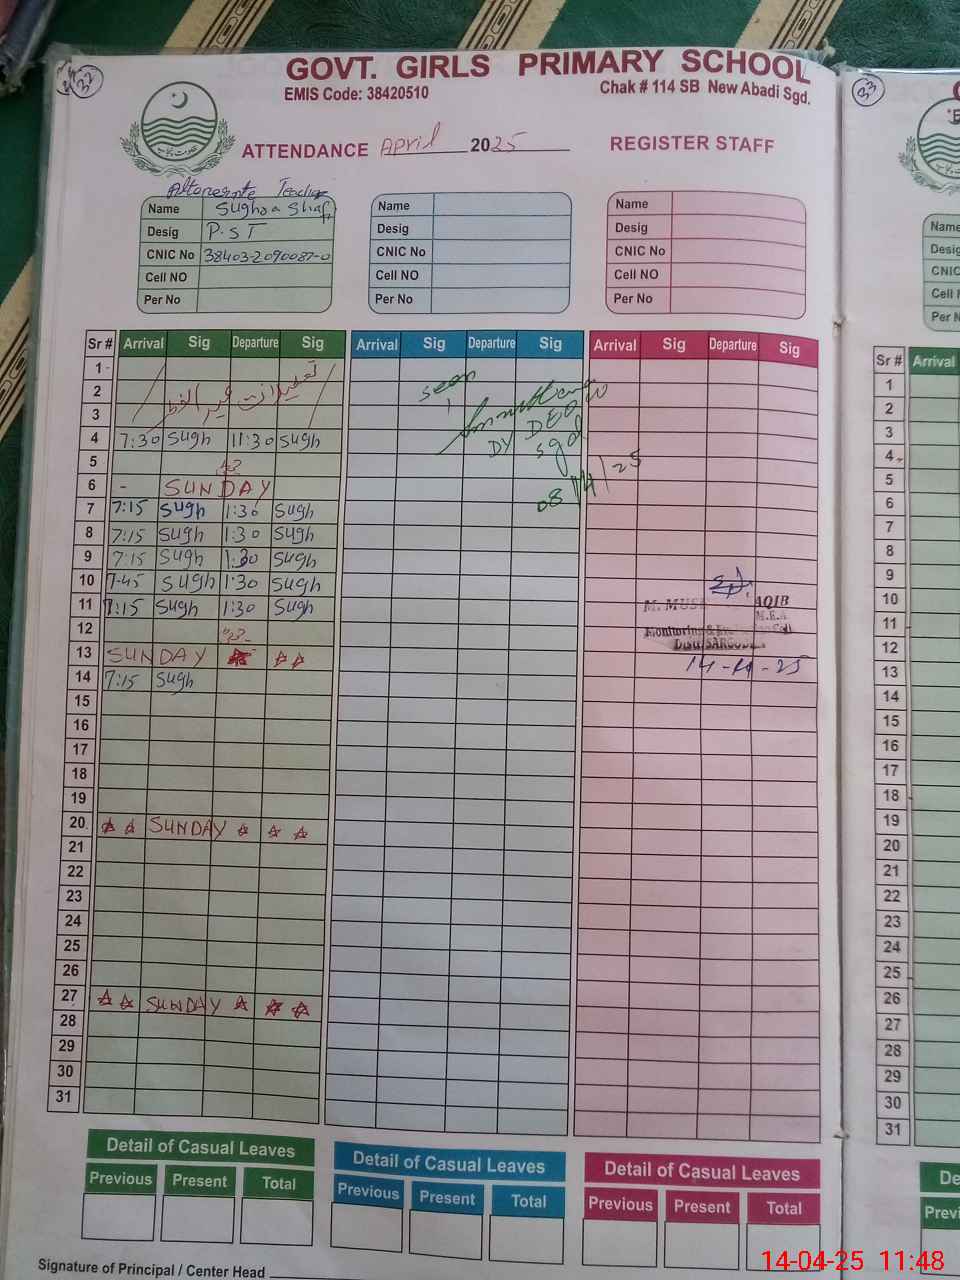 32
GOVT. GIRLS PRIMARY SCHOOL
EMIS Code: 38420510
Chak # 114 SB New Abadi Sgd.
ATTENDANCE April 2025 REGISTER STAFF
Name
Desig P.S.T
CNIC No 38403-2090087-0
Cell NO
Per No
Name
Desig
CNIC No
Cell NO
Per No
Name
Desig
CNIC No
Cell NO
Per No
Sr # Arrival Sig Departure Sig Arrival Sig Departure Sig Arrival Sig Departure Sig
1
2 تعطیلات عید الفطر
3
4 7:30 Sugh 11:30 Sugh
5
6 - SUNDAY
7 7:15 Sugh 1:30 Sugh
8 7:15 Sugh 1:30 Sugh
9 7:15 Sugh 1:30 Sugh
10 7:45 Sugh 1:30 Sugh
11 7:15 Sugh 1:30 Sugh
12
13 SUNDAY
14 7:15 Sugh
15
16
17
18
19
20 SUNDAY
21
22
23
24
25
26
27 SUNDAY
28
29
30
31
seen
DY DEO W
Sgd
08/4/25
AQIB
M.E.A
14-4-25
Detail of Casual Leaves
Previous Present Total
Detail of Casual Leaves
Previous Present Total
Detail of Casual Leaves
Previous Present Total
Signature of Principal / Center Head
33
Name
Desig
CNIC
Cell
Per N
Sr # Arrival
1
2
3
4
5
6
7
8
9
10
11
12
13
14
15
16
17
18
19
20
21
22
23
24
25
26
27
28
29
30
31
De
Previ
14-04-25 11:48